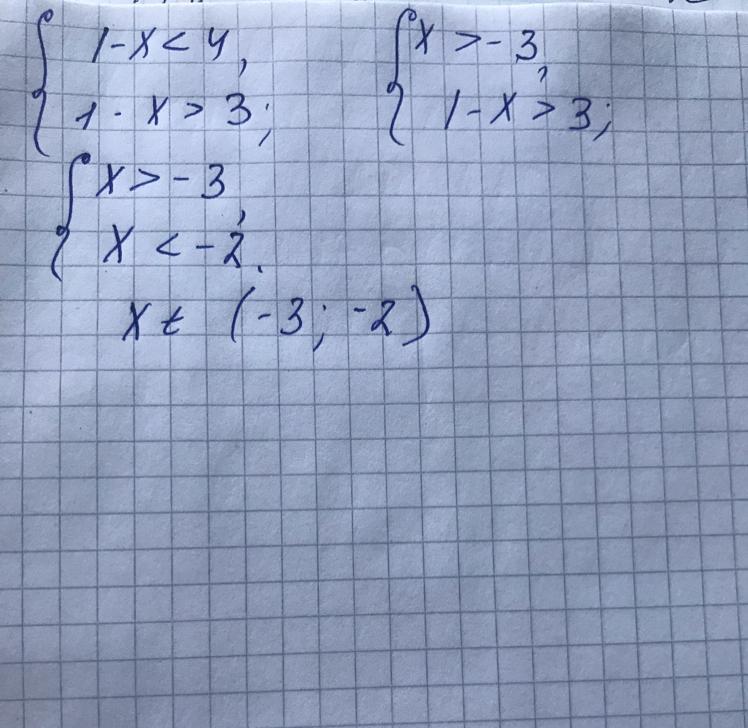 1-x<4, x>-3,
1-x>3; 1-x>3;
x>-3,
x<-2.
x∈ (-3; -2)